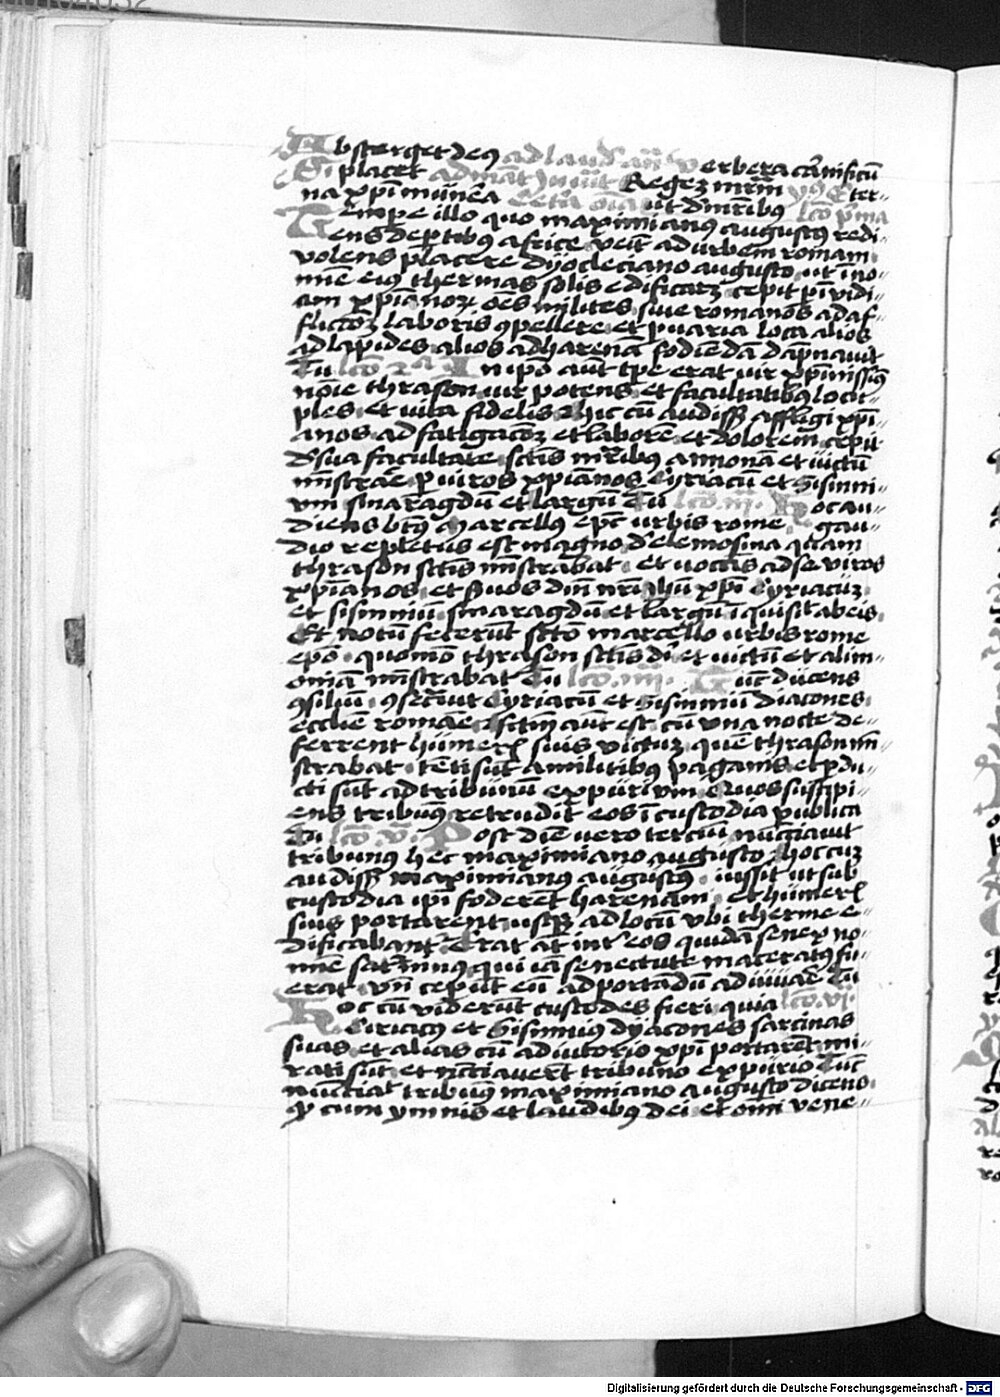 Absterget deus ad laud' an̄ Verbera carnificū
Si placet ad mat' Inuit' Regez mr̄m ys̄ Eter-
na xp̄i munera ut d'm̄ribus lc̄o p̄ma
Tempore illo quo maximianus augustus redi-
ens de ptibus africe veīt ad urbem romam
volens placere dyocleciano augusto ut ī no-
mīe eius thermas solis edificarz cepit p̄ īvidi-
am xp̄ianorz oēs milites siue romanos ad af-
flictōez laboris 9pellere et p uaria loca alios
ad lapides alios ad harenā fodiēdā dāpnauit
Tu lc̄o 2a In ip̄o aut tpe erat uir xp̄ianissi9
noīe thrason uir potens et facultatibus locu-
ples et uita fidelis hic cū audissz affligi xp̄i-
anos ad fatigacōez et laborē et dolorem cepit
d' sua facultate sctīs mr̄ibus annonā et uictū
mīstrāe p uiros xp̄ianos Cyriacū et Sisinni-
um smaragdū et largū Tu lc̄o iij. Hoc au-
diens bt̄us Marcellus epc̄ urbis rome gau-
dio repletus est magno d' elemosina quam
thrason sctīs mīstrabat et uocās ad se viros
xp̄ianos et suos dīn nr̄i ihū xp̄i Cyriacuz
et sisinniū smaragdū et largū īquisit ab eis
Et notū fecerūt scto marcello urbis rome
epō quomō thrason sctīs dī et uictū et alim-
oniā mīstrabat Tu lc̄o iiij. Tūc ducens
9siliū 9secrauit Cyriacū et Sisinniū diacones
ecclīe romāe fctm aut est cū una nocte de-
ferrent hūmeris suis victuz quē thrason mī-
strabat tēti sūt a militibus paganis et pdu-
cti sūt ad tribunū expurium Quos suscipi-
ens tribunus retrudit eos ī custodia publica
Tu lc̄o v. Post diē uero terciū nūciauit
tribunus hec maximiano augusto hoc cuz
audissz maximianus augustus iussit ut sub
custodia ip̄i foderēt harenam et hūmeris
suis portarent usqz ad locū ubi therme e-
dificabantr Erat at int' eos quidā senex no-
mīe saturninus qui iā senectute maceratus fu-
erat vn̄ cepūt eū ad portadū adiuuāe Tu
Hoc cū viderūt custodes fieri quia lc̄o vj.
Ciriacus et Sisinnius dyacones sarcinas
suas et alias cū adiutorio xp̄i portarēt mi-
rati sūt et nūciauerūt tribuno expurio Tūc
nūciat tribunus maximiano augusto dicens
qz cum ymnis et laudibus dei et omni vene-
Digitalisierung gefördert durch die Deutsche Forschungsgemeinschaft - DFG